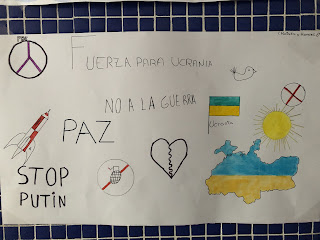 FUERZA PARA UCRANIA
NO A LA GUERRA
PAZ
Ucrania
STOP
PUTIN